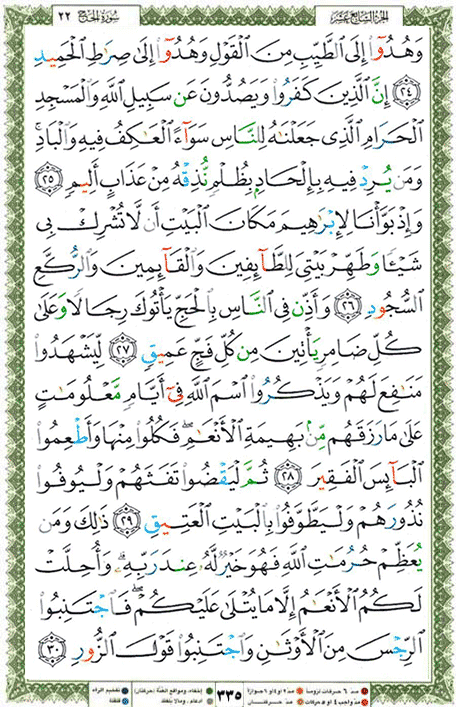 الجزء السابع عشر سورة الحج ٢٢
وَهُدُوٓا۟ إِلَى ٱلطَّيِّبِ مِنَ ٱلْقَوْلِ وَهُدُوٓا۟ إِلَىٰ صِرَٰطِ ٱلْحَمِيدِ
٢٤ إِنَّ ٱلَّذِينَ كَفَرُوا۟ وَيَصُدُّونَ عَن سَبِيلِ ٱللَّهِ وَٱلْمَسْجِدِ
ٱلْحَرَامِ ٱلَّذِى جَعَلْنَٰهُ لِلنَّاسِ سَوَآءً ٱلْعَٰكِفُ فِيهِ وَٱلْبَادِ ۚ
وَمَن يُرِدْ فِيهِ بِإِلْحَادٍۭ بِظُلْمٍ نُّذِقْهُ مِنْ عَذَابٍ أَلِيمٍ ٢٥
وَإِذْ بَوَّأْنَا لِإِبْرَٰهِيمَ مَكَانَ ٱلْبَيْتِ أَن لَّا تُشْرِكْ بِى
شَيْـًٔا وَطَهِّرْ بَيْتِىَ لِلطَّآئِفِينَ وَٱلْقَآئِمِينَ وَٱلرُّكَّعِ
ٱلسُّجُودِ ٢٦ وَأَذِّن فِى ٱلنَّاسِ بِٱلْحَجِّ يَأْتُوكَ رِجَالًا وَعَلَىٰ
كُلِّ ضَامِرٍ يَأْتِينَ مِن كُلِّ فَجٍّ عَمِيقٍ ٢٧ لِّيَشْهَدُوا۟
مَنَٰفِعَ لَهُمْ وَيَذْكُرُوا۟ ٱسْمَ ٱللَّهِ فِىٓ أَيَّامٍ مَّعْلُومَٰتٍ
عَلَىٰ مَا رَزَقَهُم مِّنۢ بَهِيمَةِ ٱلْأَنْعَٰمِ ۖ فَكُلُوا۟ مِنْهَا وَأَطْعِمُوا۟
ٱلْبَآئِسَ ٱلْفَقِيرَ ٢٨ ثُمَّ لْيَقْضُوا۟ تَفَثَهُمْ وَلْيُوفُوا۟
نُذُورَهُمْ وَلْيَطَّوَّفُوا۟ بِٱلْبَيْتِ ٱلْعَتِيقِ ٢٩ ذَٰلِكَ وَمَن
يُعَظِّمْ حُرُمَٰتِ ٱللَّهِ فَهُوَ خَيْرٌ لَّهُۥ عِندَ رَبِّهِۦ ۗ وَأُحِلَّتْ
لَكُمُ ٱلْأَنْعَٰمُ إِلَّا مَا يُتْلَىٰ عَلَيْكُمْ ۖ فَٱجْتَنِبُوا۟
ٱلرِّجْسَ مِنَ ٱلْأَوْثَٰنِ وَٱجْتَنِبُوا۟ قَوْلَ ٱلزُّورِ ٣٠
مد ٦ حركات لزوماً مد ٢ أو ٤ أو ٦ جوازاً ٣٣٥ إخفاء، ومواقع الغنة (حركتان) تفخيم الراء
مد واجب ٤ أو ٥ حركات مد حركتان إدغام، وما لا يلفظ قلقلة